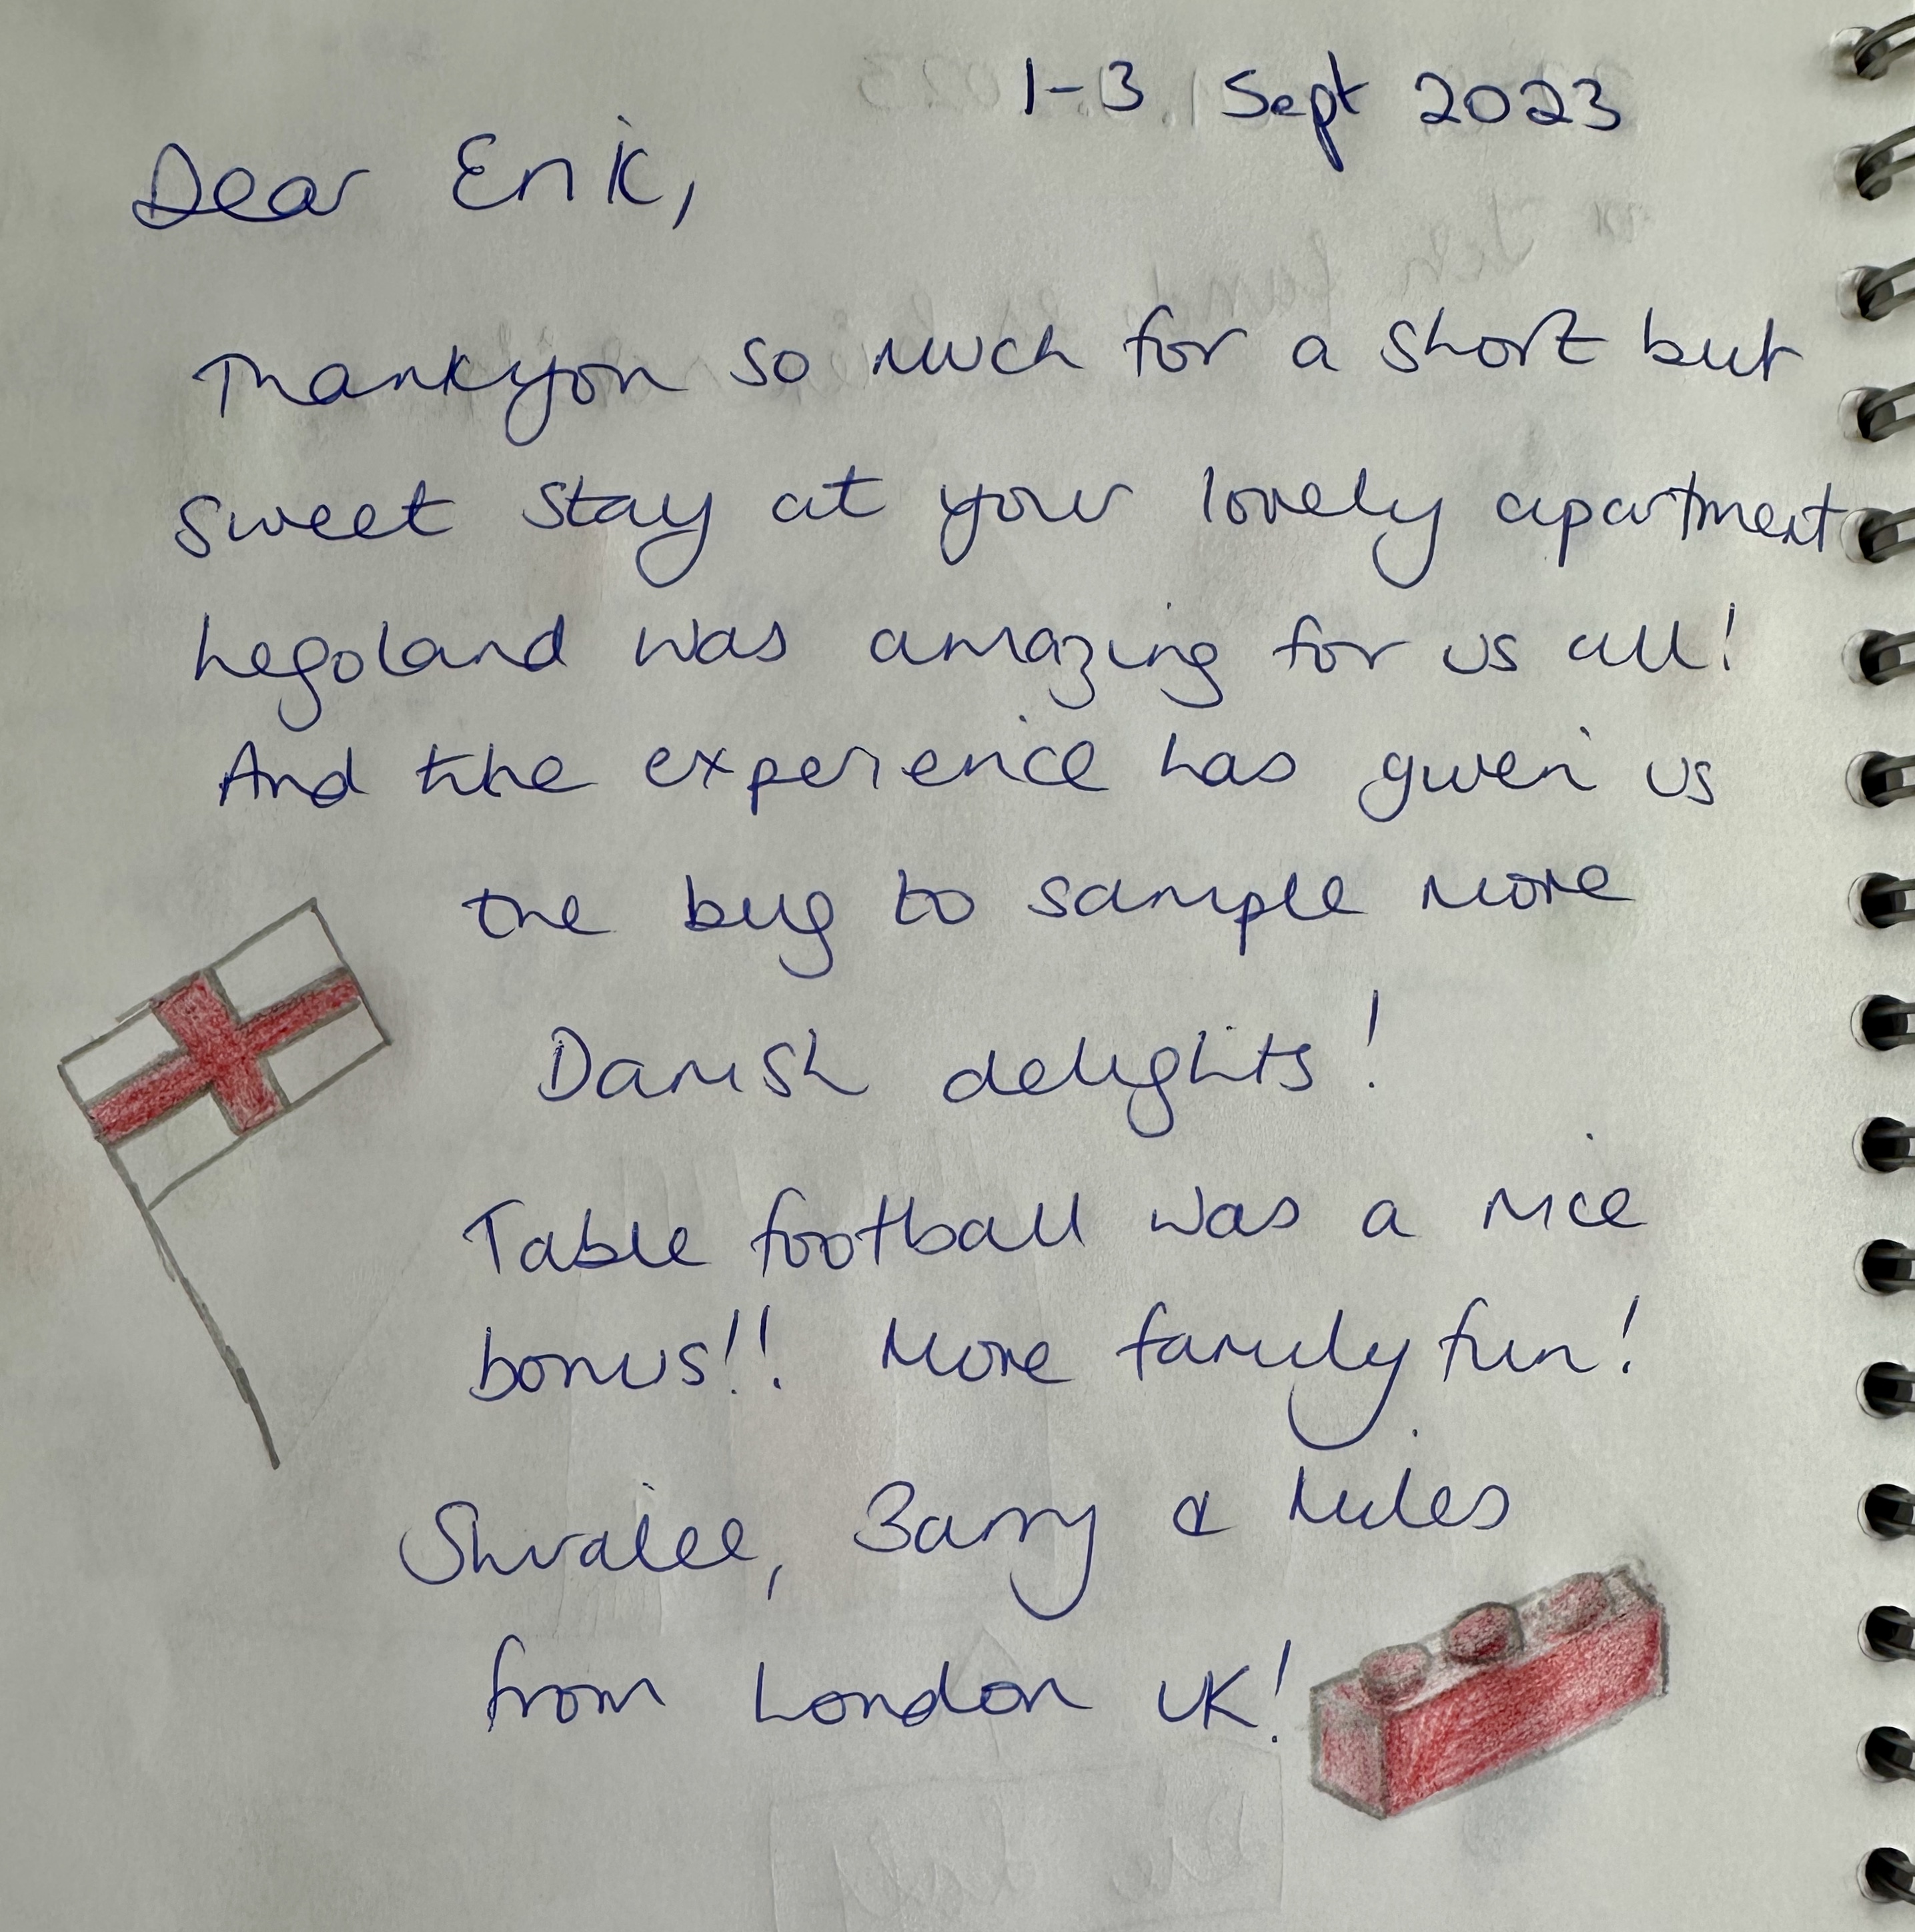 1-3 Sept 2023
Dear Erik,
Thankyou so much for a short but
sweet stay at your lovely apartment
Legoland was amazing for us all!
And the experience has given us
the bug to sample more
Danish delights!
Table football was a nice
bonus!! More family fun!
Shivalee, Barry & Miles
from London UK!